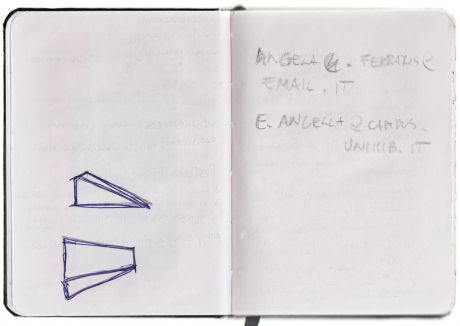 ANGELA . FERRARIS@
EMAIL . IT
E. ANGELLA @ CAMPUS.
UNIMIB. IT